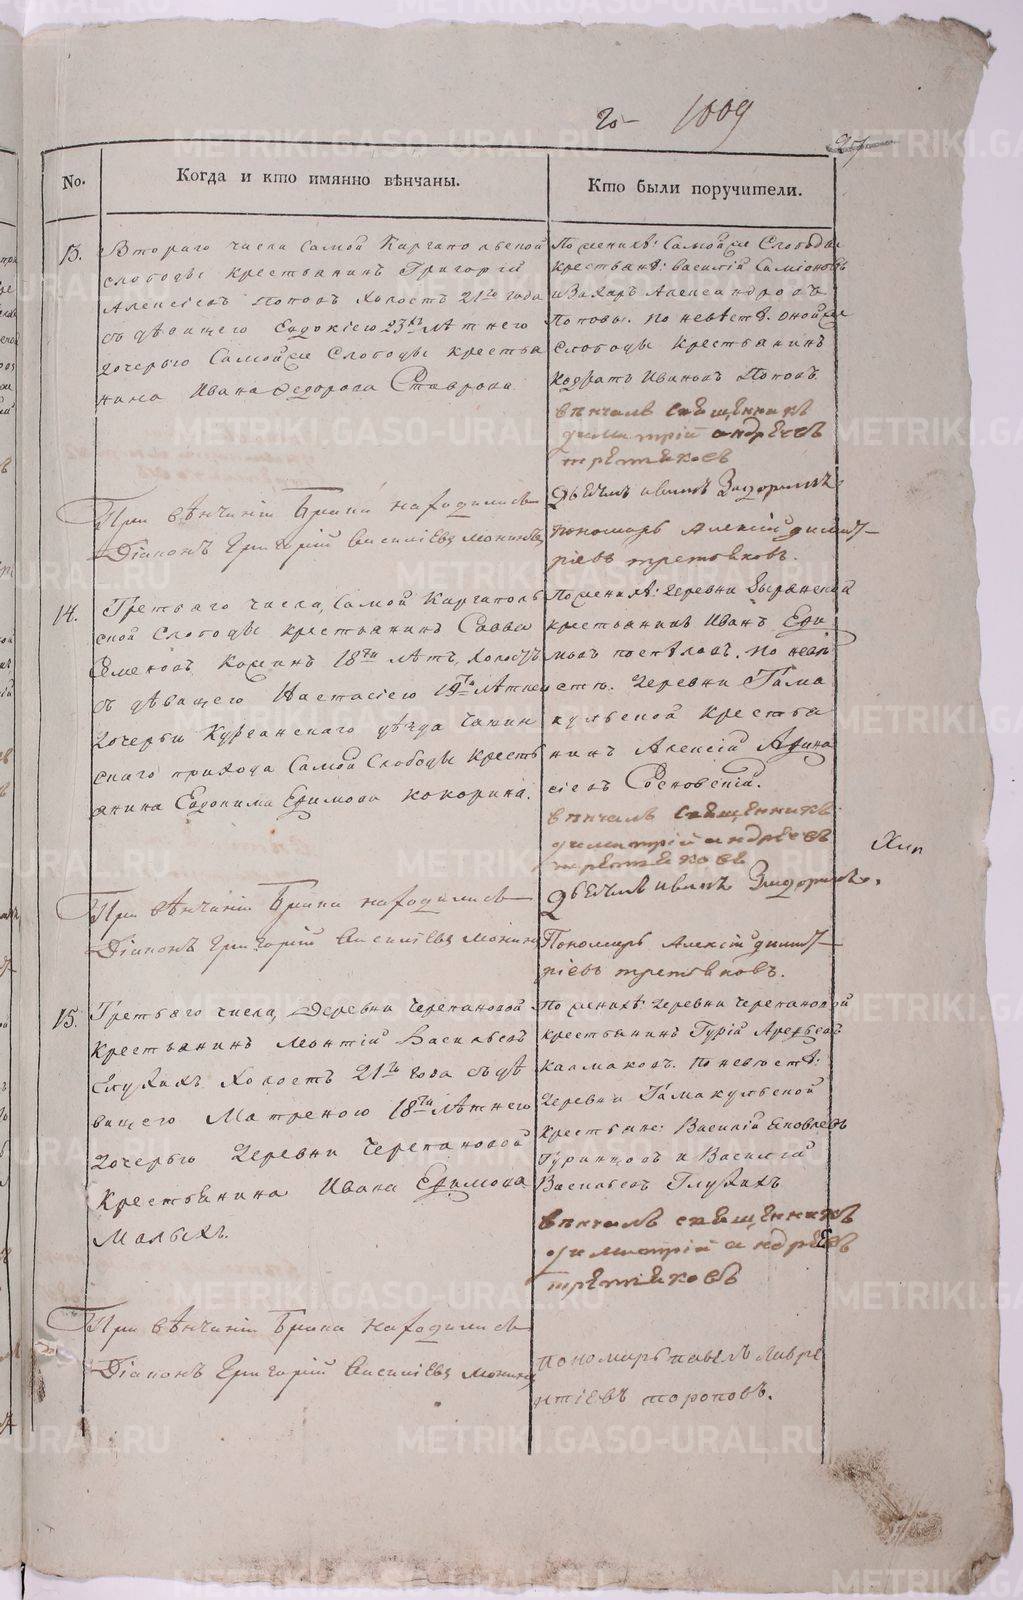 1009
No.
Когда и кто имянно вѣнчаны.
Кто были поручители.
13.
Втораго числа Самой Каргапольской
слободы крестьянинъ Григорій
Алексѣевъ Поповъ холостъ 21го года
съ дѣвицею Евдокіею 23хъ лѣтнею
дочерью Самой же Слободы крестья
нина Ивана Федорова
По женихѣ: Самой же Слободы
крестьяне: Василій Симіоновъ
и Захаръ Александровъ
Поповы. По невѣстѣ: оной же
слободы крестьянинъ
Ивановъ Поповъ.
вѣнчалъ священникъ
димитрій андреевъ
третьяковъ
При вѣнчаніи Брака находились
Діаконъ Григорій Василіевъ
Дьячекъ иванъ
пономарь Алексій дмит
ріевъ третьяковъ.
14.
Третьяго числа, Самой Каргаполь
ской Слободы крестьянинъ Савва
Семеновъ 18ти лѣтъ, холостъ
съ дѣвицею Настасіею 19ти лѣтнею
дочерью Курганскаго уѣзда Чашин
скаго прихода Самой Слободы кресть
янина Евдокима Ефимова Кокорина.
По женихѣ: деревни
крестьянинъ Иванъ Ефи
мовъ Поспѣловъ. По невѣ
стѣ. деревни Гама
кульской крестья
нинъ Алексій Афона
сіевъ Сосновскій.
вѣнчалъ священникъ
димитрій андреевъ
третьяковъ
При вѣнчаніи Брака находились
Діаконъ Григорій Василіевъ
Дьячекъ иванъ
Пономарь Алексій дмит
ріевъ третьяковъ.
15.
Третьяго числа, Деревни Черепановой
крестьянинъ Василіевъ
Глухихъ холостъ 21го года съ дѣ
вицею Матреною 18ти лѣтнею
дочерью деревни Черепановой
крестьянина Ивана Ефимова
Малыхъ.
По женихѣ: деревни Черепановой
крестьянинъ Гурій
Калмаковъ. По невѣстѣ:
деревни Гамакульской
крестьяне: Василій Яковлевъ
и Василій
Васильевъ Глухихъ
вѣнчалъ священникъ
димитрій андреевъ
третьяковъ
При вѣнчаніи Брака находились
Діаконъ Григорій Василіевъ
пономарь павелъ лавре
нтіевъ тороповъ.
METRIKI.GASO-URAL.RU